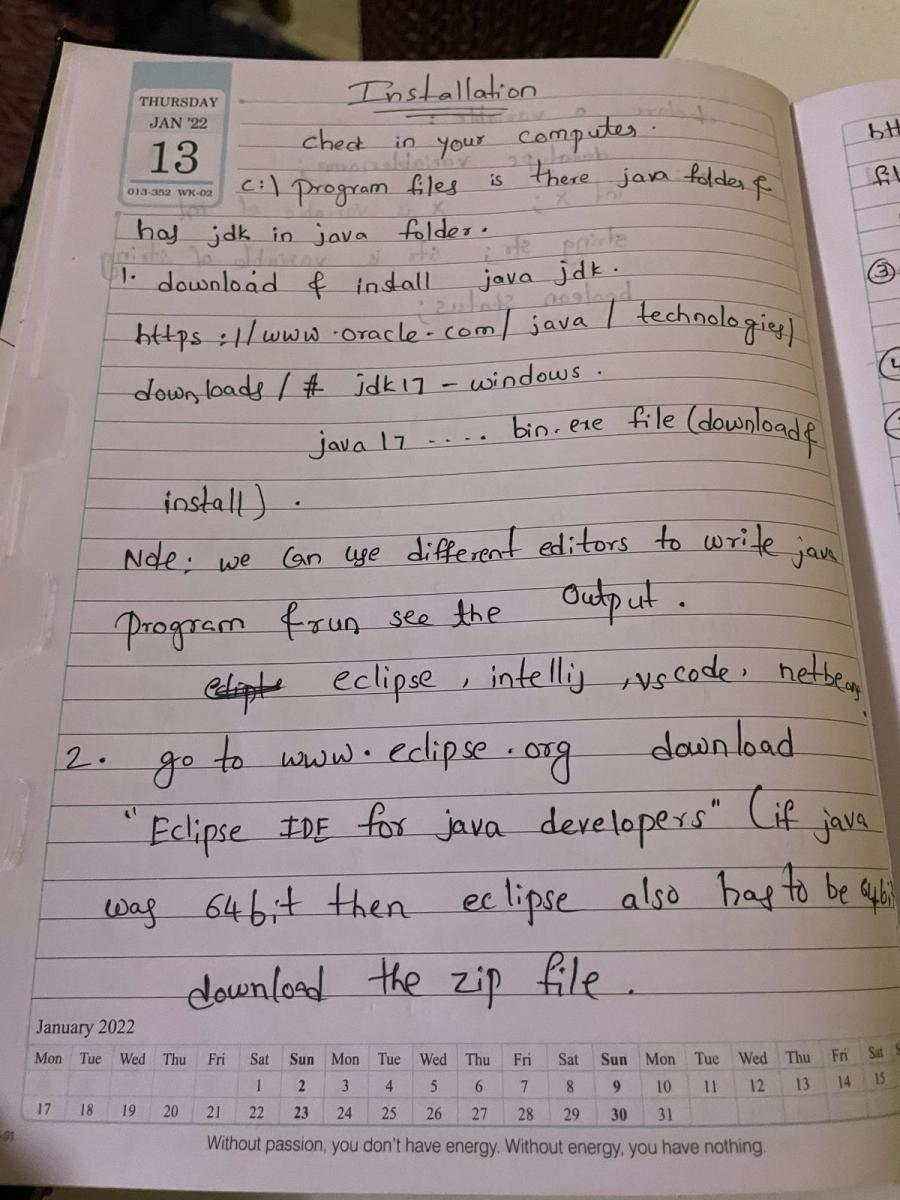 THURSDAY
JAN '22
13
013-352 WK-02
Installation
check in your computer.
C:\ program files is there java folder &
has jdk in java folder.
1. download & install java jdk.
https://www.oracle.com/java/technologies/
downloads/# jdk17-windows.
java 17 .... bin.exe file (download &
install).
Note: we can use different editors to write java
program & run see the output.
eclipse, intellij, vs code, netbeans.
2. go to www.eclipse.org download
"Eclipse IDE for java developers" (if java
was 64bit then eclipse also has to be 64bit
download the zip file.
January 2022
Mon Tue Wed Thu Fri Sat Sun Mon Tue Wed Thu Fri Sat Sun Mon Tue Wed Thu Fri Sat
1 2 3 4 5 6 7 8 9 10 11 12 13 14 15
17 18 19 20 21 22 23 24 25 26 27 28 29 30 31
Without passion, you don't have energy. Without energy, you have nothing.
3